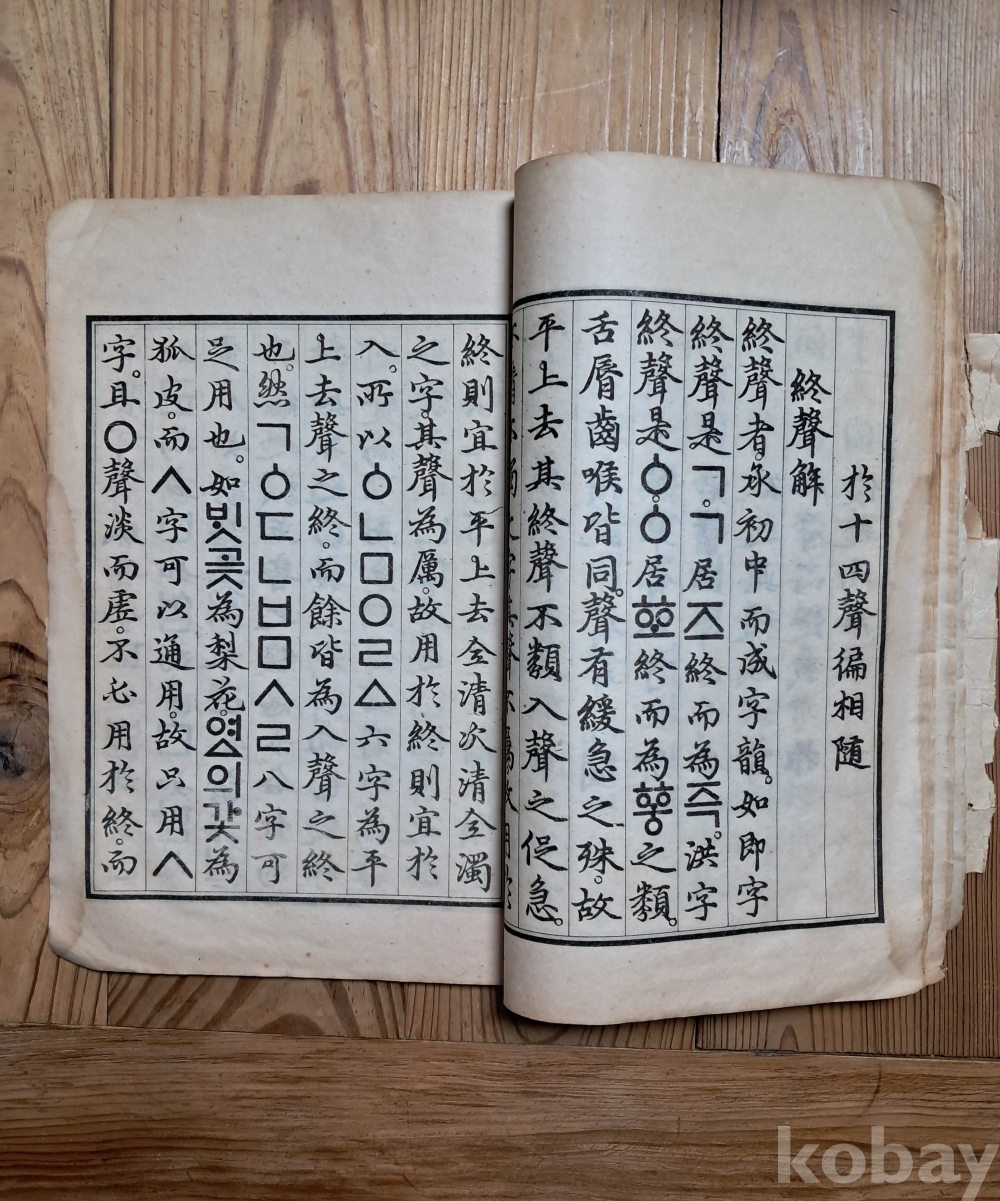 於十四聲徧相隨
終聲解
終聲者。承初中而成字韻。如即字
終聲是ㄱ。ㄱ居즈終而為즉。洪字
終聲是ㆁ。ㆁ居ᅘᅩ終而為ᅘᅩᇰ之類。
舌脣齒喉皆同。聲有緩急之殊。故
平上去其終聲不類入聲之促急。
終則宜於平上去全清次清全濁
之字。其聲為厲。故用於終則宜於
入。所以ㆁㄴㅁㅇㄹㅿ六字為平
上去聲之終。而餘皆為入聲之終
也。然ㄱㆁㄷㄴㅂㅁㅅㄹ八字可
足用也。如빗곶為梨花。여ᇫ의갗為
狐皮。而ㅅ字可以通用。故只用ㅅ
字。且ㅇ聲淡而虛。不必用於終。而
kobay